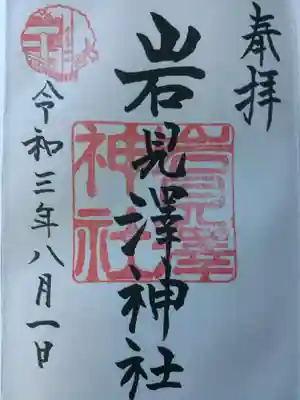 奉拝
岩見澤神社
岩見澤
神社
令和三年八月一日